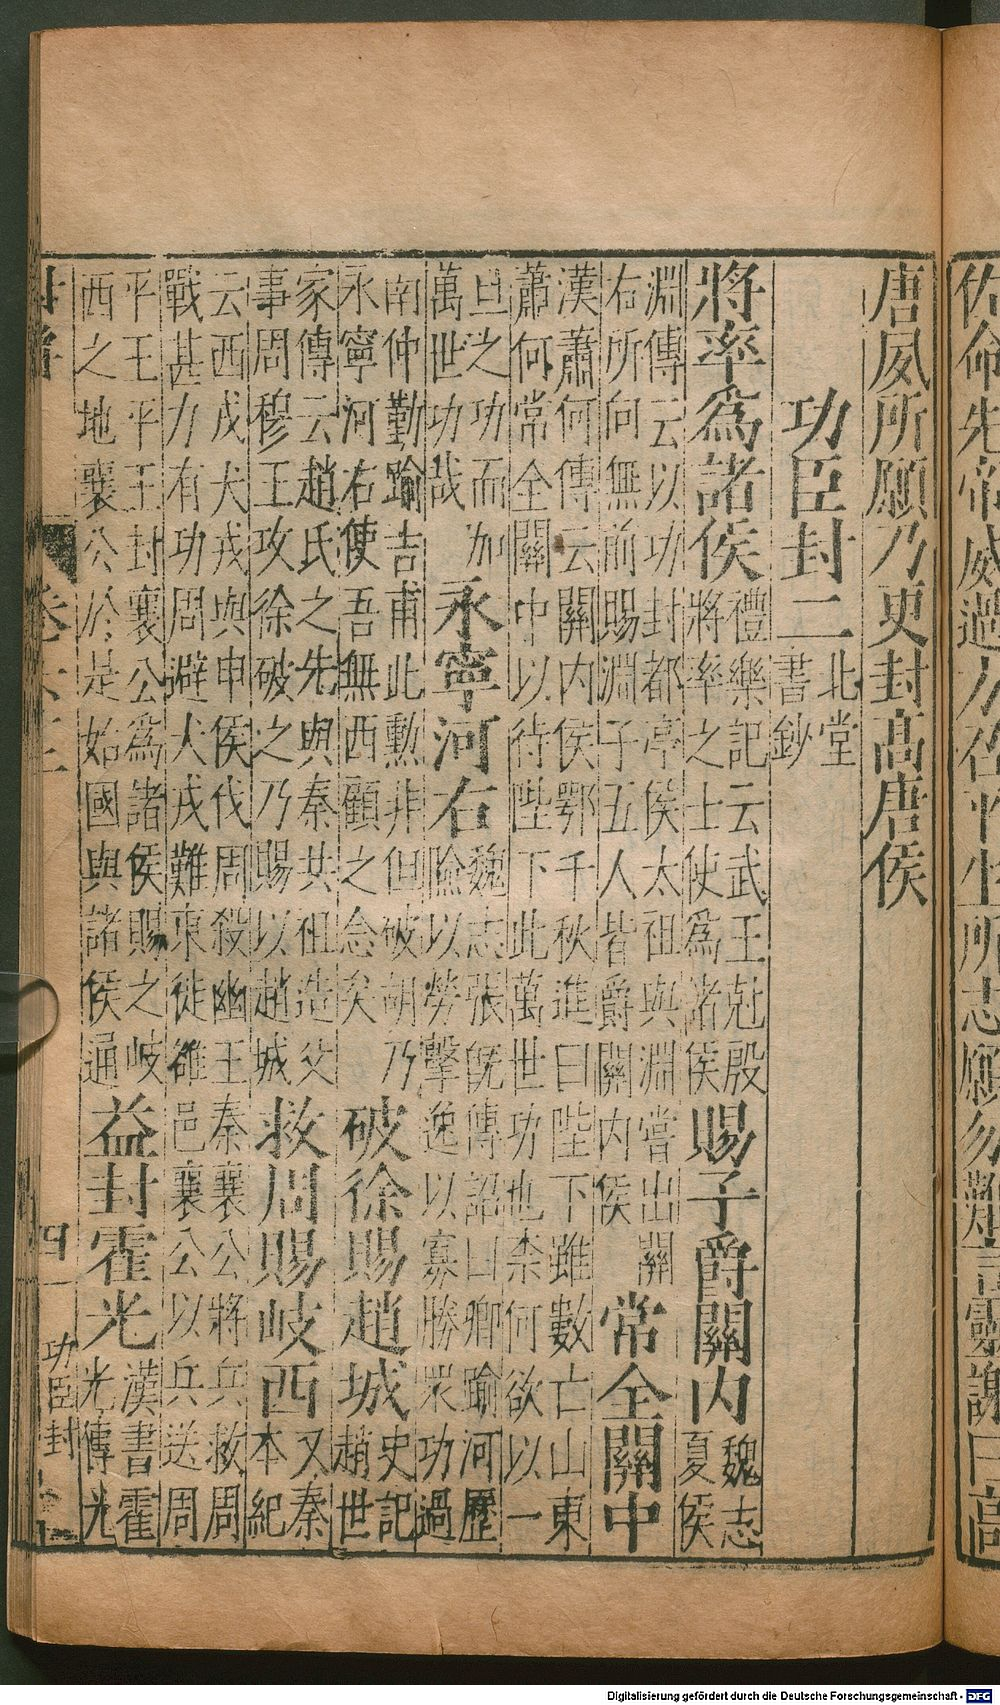 佐命先帝威過方在平生所志願勿對主言靈謝曰高
唐夙所願乃更封高唐侯
功臣封二 北堂書鈔
將率爲諸侯 禮樂記云武王尅殷將率之士使爲諸侯 賜子爵關内 魏志夏侯
淵傳云以功封都亭侯太祖與淵嘗出關右所向無前賜淵子五人皆爵關内侯 常全關中
漢蕭何傳云關内侯鄂千秋進曰陛下雖數亡山東蕭何常全關中以待陛下此萬世功也柰何欲以一
旦之功而加萬世功哉 永寧河右 魏志張旣傳詔曰卿踰河歷險以勞擊逸以寡勝眾功過
南仲勤踰吉甫此勳非但破胡乃永寧河右使吾無西顧之念矣 破徐賜趙城 史記趙世
家傳云趙氏之先與秦共祖造父事周穆王攻徐破之乃賜以趙城 救周賜岐西 又秦本紀
云西戎犬戎與申侯伐周殺幽王秦襄公將兵救周戰甚力有功周避犬戎難東徙雒邑襄公以兵送周
平王平王封襄公爲諸侯賜之岐西之地襄公於是始國與諸侯通 益封霍光 漢書霍光傳光
四
功臣封
Digitalisierung gefördert durch die Deutsche Forschungsgemeinschaft - DFG